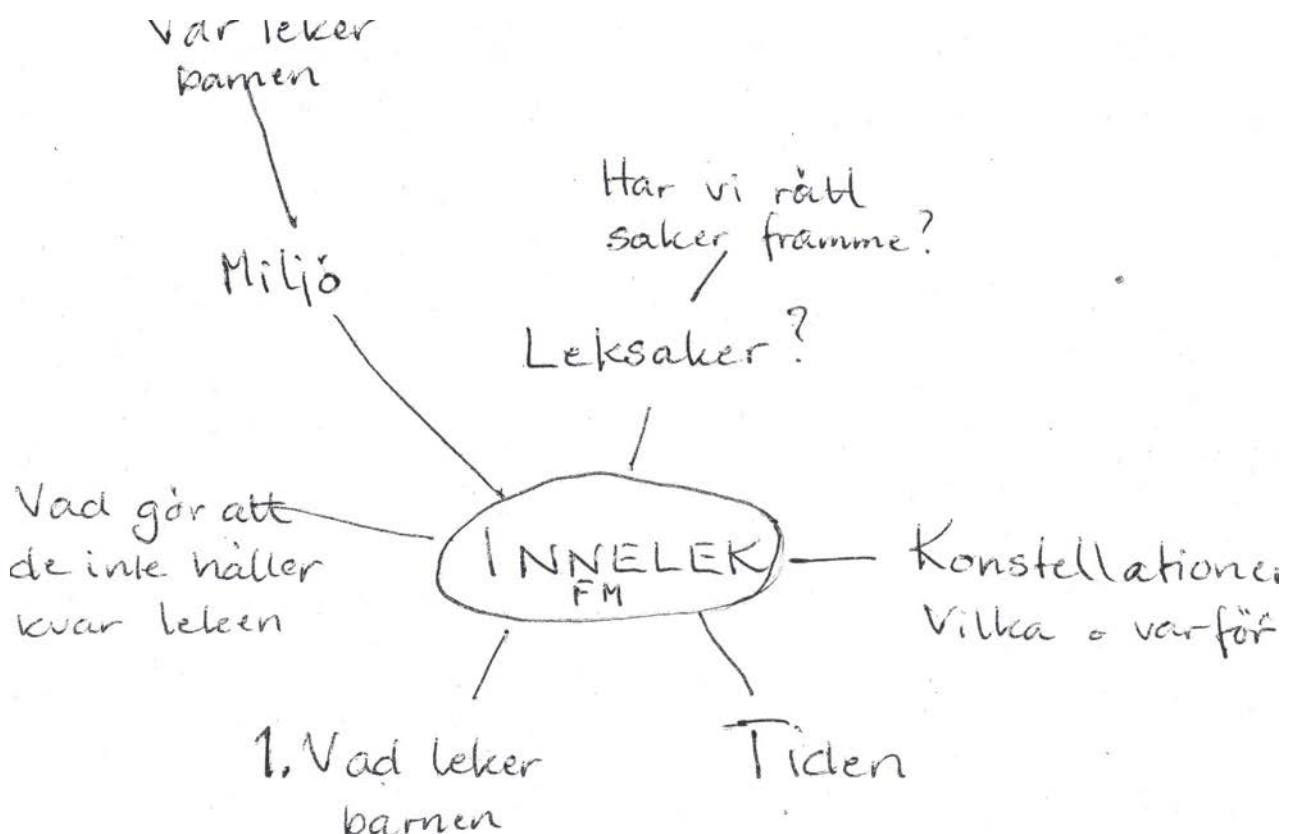 Var leker
barnen
Har vi rätt
saker framme?
Miljö
Leksaker?
Vad gör att
de inte håller
kvar leken
INNELEK
FM
Konstellatione
Vilka o varför
1. Vad leker
barnen
Tiden